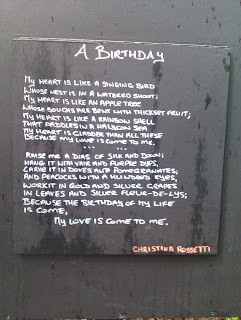 A BIRTHDAY
MY HEART IS LIKE A SINGING BIRD
WHOSE NEST IS IN A WATERED SHOOT;
MY HEART IS LIKE AN APPLE TREE
WHOSE BOUGHS ARE BENT WITH THICKSET FRUIT;
MY HEART IS LIKE A RAINBOW SHELL
THAT PADDLES IN A HALCYON SEA
MY HEART IS GLADDER THAN ALL THESE
BECAUSE MY LOVE IS COME TO ME.
... ... ...
RAISE ME A DIAS OF SILK AND DOWN;
HANG IT WITH VAIR AND PURPLE DYES,
CARVE IT IN DOVES AND POMEGRANATES,
AND PEACOCKS WITH A HUNDRED EYES,
WORK IT IN GOLD AND SILVER GRAPES
IN LEAVES AND SILVER FLEUR-DE-LYS;
BECAUSE THE BIRTHDAY OF MY LIFE
IS COME,
MY LOVE IS COME TO ME.
CHRISTINA ROSSETTI